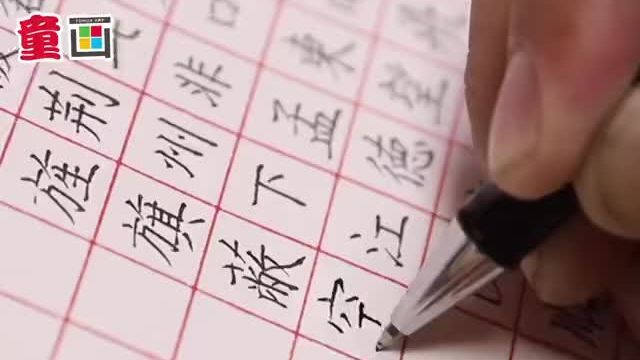 童画
口东望
非孟德
荆州下江
旌旗蔽空